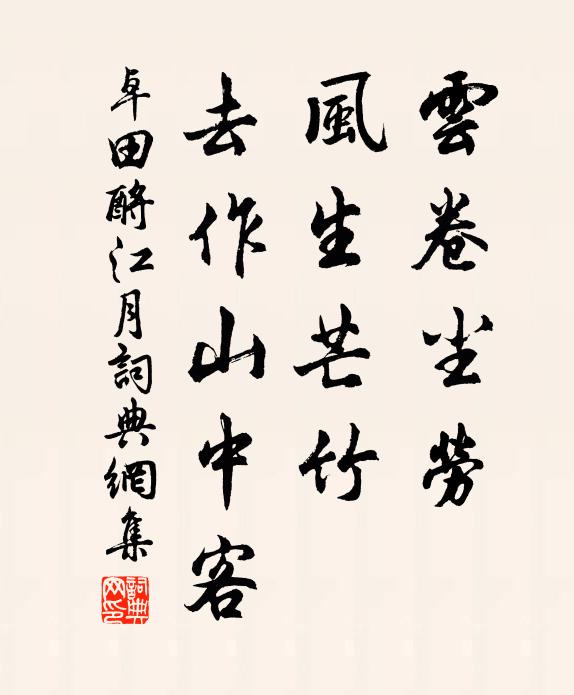 雲卷尘勞
風生芒竹
去作山中客
卓田酹江月詞典網集
詞典网印